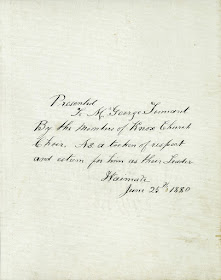 Presented
To Mr George Tennant
By the members of Knox Church
Choir. As a token of respect
and esteem for him as their Leader
Waimate
June 25th 1880